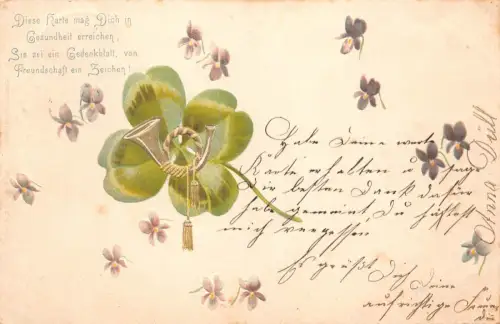 Diese Karte mag Dich in
Gesundheit erreichen,
Sie sei ein Gedenkblatt, von
Freundschaft ein Zeichen!
Habe Deine werte
Karte erhalten u sage
Dir besten Dank dafür
habe gemeint Du hättest
mich vergessen
Es grüßt Dich Deine
aufrichtige
Anna